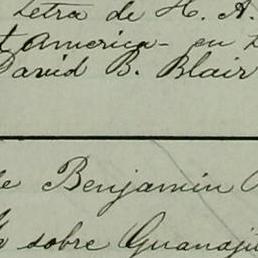 Letra de H. A.
America - en
David B. Blair
Benjamin
sobre Guanaju